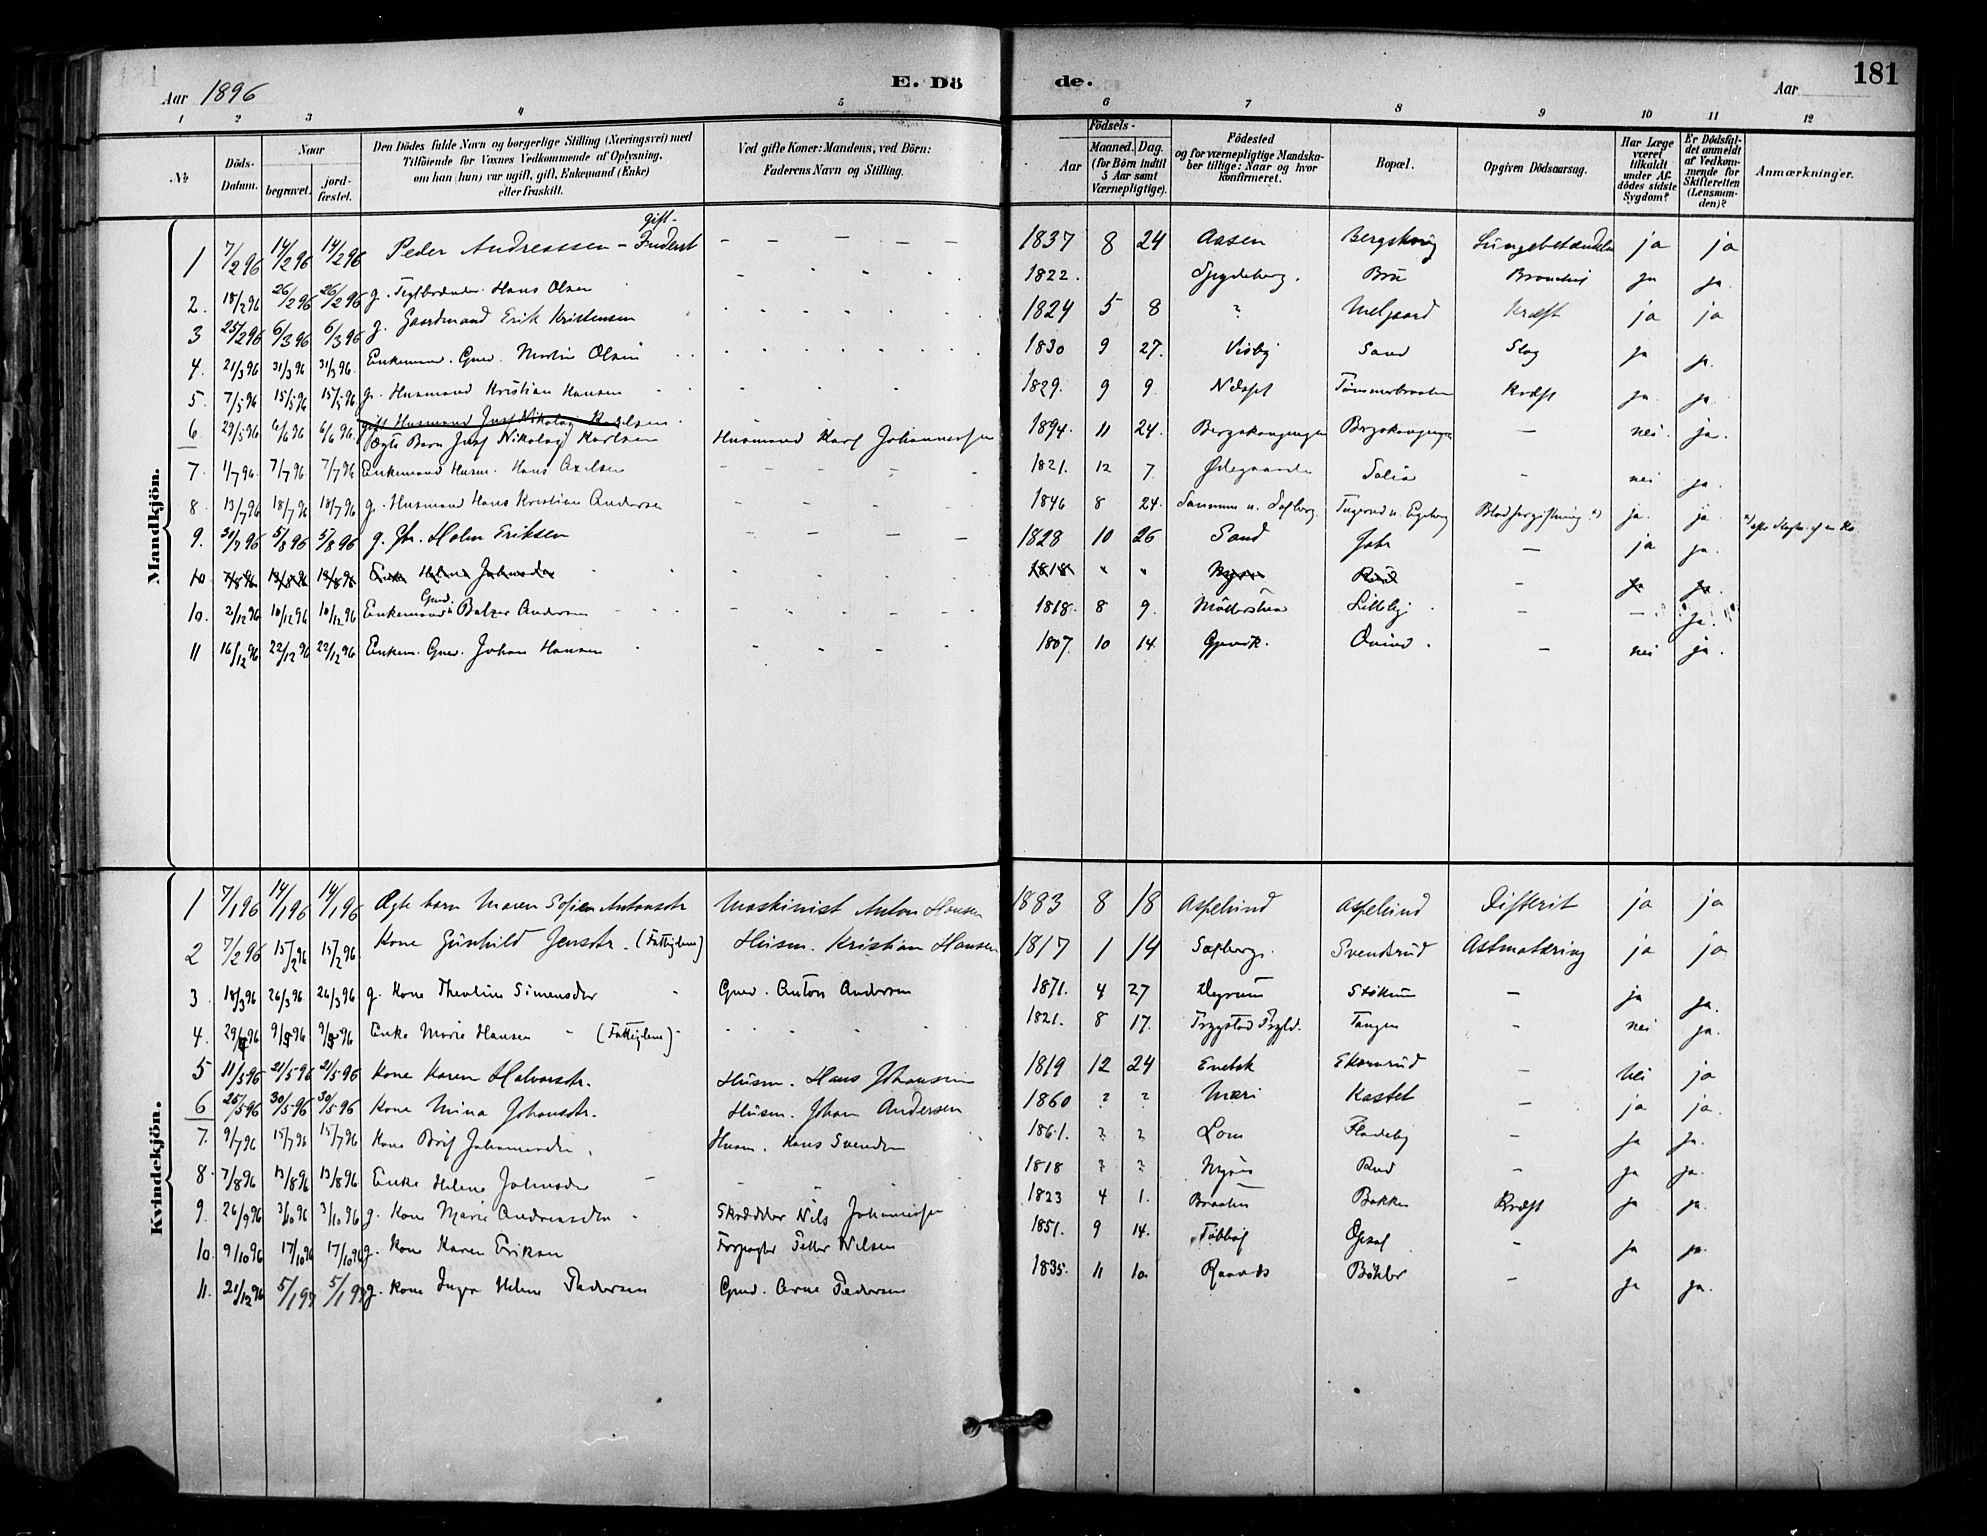 Aar 1896 E. Dö de. Aar 181
1 2 3 4 5 6 7 8 9 10 11 12
No. Döds-Datum. Naar begravet. jord-fæstet. Den Dödes fulde Navn og borgerlige Stilling (Næringsvei) med Tilföiende for Voxnes Vedkommende af Oplysning, om han (hun) var ugift, gift, Enkemand (Enke) eller fraskilt. Ved gifte Koner: Mandens, ved Börn: Faderens Navn og Stilling. Födsels- Aar Maaned. Dag. (for Börn indtil 5 Aar samt Værnepligtige). Födested og for værnepligtige Mandskaber tillige: Naar og hvor Konfirmeret. Bopæl. Opgiven Dödsaarsag. Har Læge været tilkaldt under Afdödes sidste Sygdom? Er Dödsfaldet anmeldt af Vedkommende for Skifteretten (Lensmanden)? Anmærkninger.
Mandkjön.
1 7/2 96 14/2 96 14/2 96 Peder Andreassen - gift - Inderst - - - - - 1837 8 24 Aasen Lungebetændelse ja ja
2. 18/2 96 26/2 96 26/2 96 g. Hans Olsen 1822. Spydeberg. Bru Bronchit ja ja.
3 25/2 96 6/3 96 6/3 96 g. Gaardmand Erik Kristensen 1824 5 8 ? Melgaard Kræft ja ja
4. 21/3 96 31/3 96 31/3 96. Enkemand. Gmd. Martin Olsen 1830 9 27. Visby Sand Slag ja ja.
5. 7/5 96 15/5 96 15/5 96 g. Husmand Kristian Hansen 1829. 9 9. Næsset Tømmerbraaten Kræft ja. ja.
6 29/5 96 6/6 96 6/6 96. gift Husmand Josef Nikolay Karlsen
Ægte Barn Josef Nikolay Karlsen Husmand Karl Johannessen 1894. 11 24. - nei. ja.
7. 1/7 96. 7/7 96 7/7 96 Enkemand Husm. Hans Axelsen 1821. 12 7. Ødegaarden Solia - nei ja.
8. 13/7 96 18/7 96 18/7 96 g. Husmand Hans Kristian Andersen 1846 8 24. Blodforgiftning *) ja. ja.
9. 31/7 96 5/8 96 5/8 96 g. Holm Eriksen 1828 10 26 Sand - ja ja.
10. 7/8 96 13/8 96 13/8 96 Enke Helene Johnsdtr 1818 " " Myren Rud - ja ja.
10. 2/12 96 10/12 96 10/12 96 Enkemand Gmd. Balzer Andersen 1818. 8 9. Lilleby - - ja.
11 16/12 96 22/12 96 22/12 96 Enkem. Gmd. Johan Hansen 1807. 10 14. - nei ja.
Kvindekjön.
1 7/1 96 14/1 96 14/1 96 Ægte barn Maren Sofie Antonsdtr Maskinist Anton Hansen 1883 8 18 Aspelund Aspelund Difterit ja ja
2 7/2 96 15/2 96 15/2 96. Kone Gunhild Jensdtr. (Fattiglem) Husm. Kristian Hansen 1817 1 14 Svendsrud ja ja
3. 18/3 96 26/3 96 26/3 96 g. Kone Theoline Simensdtr Gmd. Anton Andersen 1871. 4 27 - ja ja.
4. 29/4 96 9/5 96 9/5 96 Enke Marie Hansen (Fattiglem) 1821. 8 17. Tangen - nei ja.
5 11/5 96 21/5 96 21/5 96 Kone Karen Halvorsdtr. Husm. Hans Johansen 1819 12 24 Enebak Ekornrud - nei ja
6 25/5 96 30/5 96 30/5 96 Kone Mina Johansdtr. Husm. Johan Andersen 1860 ? ? Kastet - ja ja.
7. 9/7 96 15/7 96 15/7 96 Kone Johannesdtr. Husm. Hans Svendsen 1861. ? ? Lom Fladeby - ja ja.
8. 7/8 96 13/8 96 13/8 96 Enke Helene Johnsdtr - 1818 ? ? Myren Rud - ja ja.
9. 26/9 96 3/10 96 3/10 96 g. Kone Marie Andreasdtr Skrædder Nils Johannessen 1823 4 1. Braaten Bakken Kræft ja ja.
10. 9/10 96 17/10 96 17/10 96 g. Kone Karen Eriksen Forpagter Petter Nilsen 1851. 9 14. Opsal - ja ja.
11. 21/12 96 5/1 97 5/1 97 g. Kone Inger Helene Pedersen Gmd. Arne Pedersen 1835. 11 10. Bøhler - ja ja.